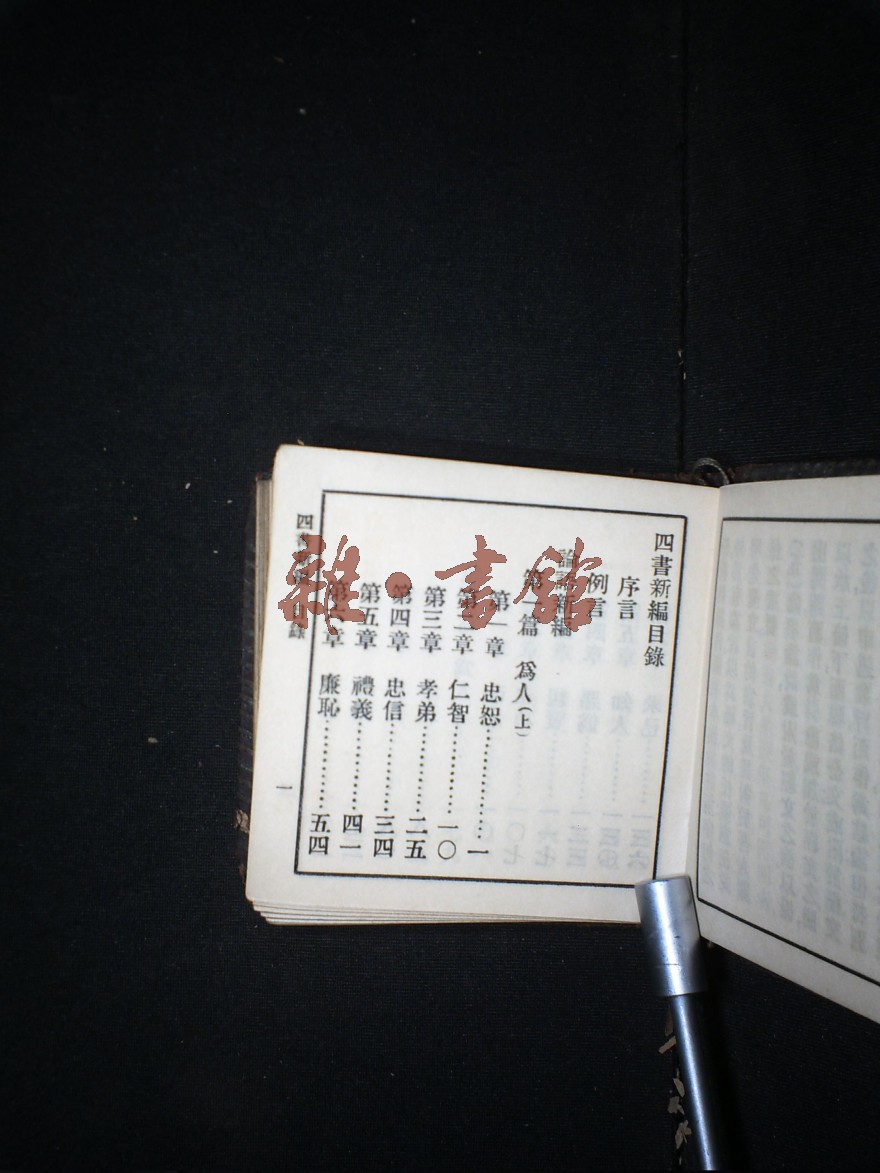 四書新編目錄
序言
例言
論語新編
第一篇 為人（上）
第一章 忠恕…………一
第二章 仁智…………一〇
第三章 孝弟…………二五
第四章 忠信…………三四
第五章 禮義…………四一
第六章 廉恥…………五四
四書新編目錄
一
雜·書館